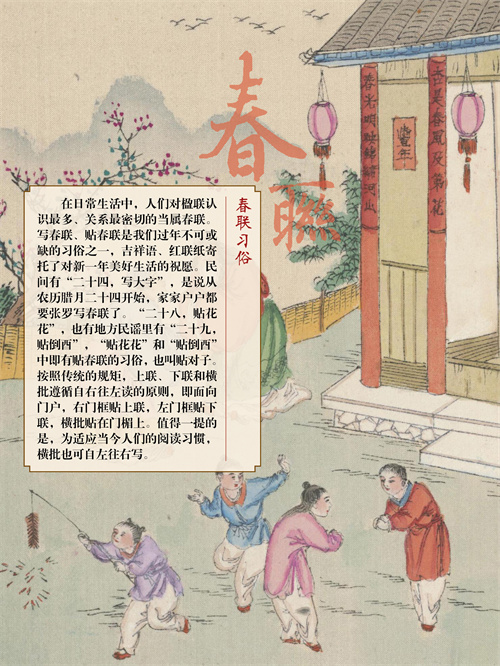 春聯
春联习俗
在日常生活中，人们对楹联认
识最多、关系最密切的当属春联。
写春联、贴春联是我们过年不可或
缺的习俗之一，吉祥语、红联纸寄
托了对新一年美好生活的祝愿。民
间有“二十四，写大字”，是说从
农历腊月二十四开始，家家户户都
要张罗写春联了。“二十八，贴花
花”，也有地方民谣里有“二十九，
贴倒西”，“贴花花”和“贴倒西”
中即有贴春联的习俗，也叫贴对子。
按照传统的规矩，上联、下联和横
批遵循自右往左读的原则，即面向
门户，右门框贴上联，左门框贴下
联，横批贴在门楣上。值得一提的
是，为适应当今人们的阅读习惯，
横批也可自左往右写。
春風及第花
豐年
春光明映